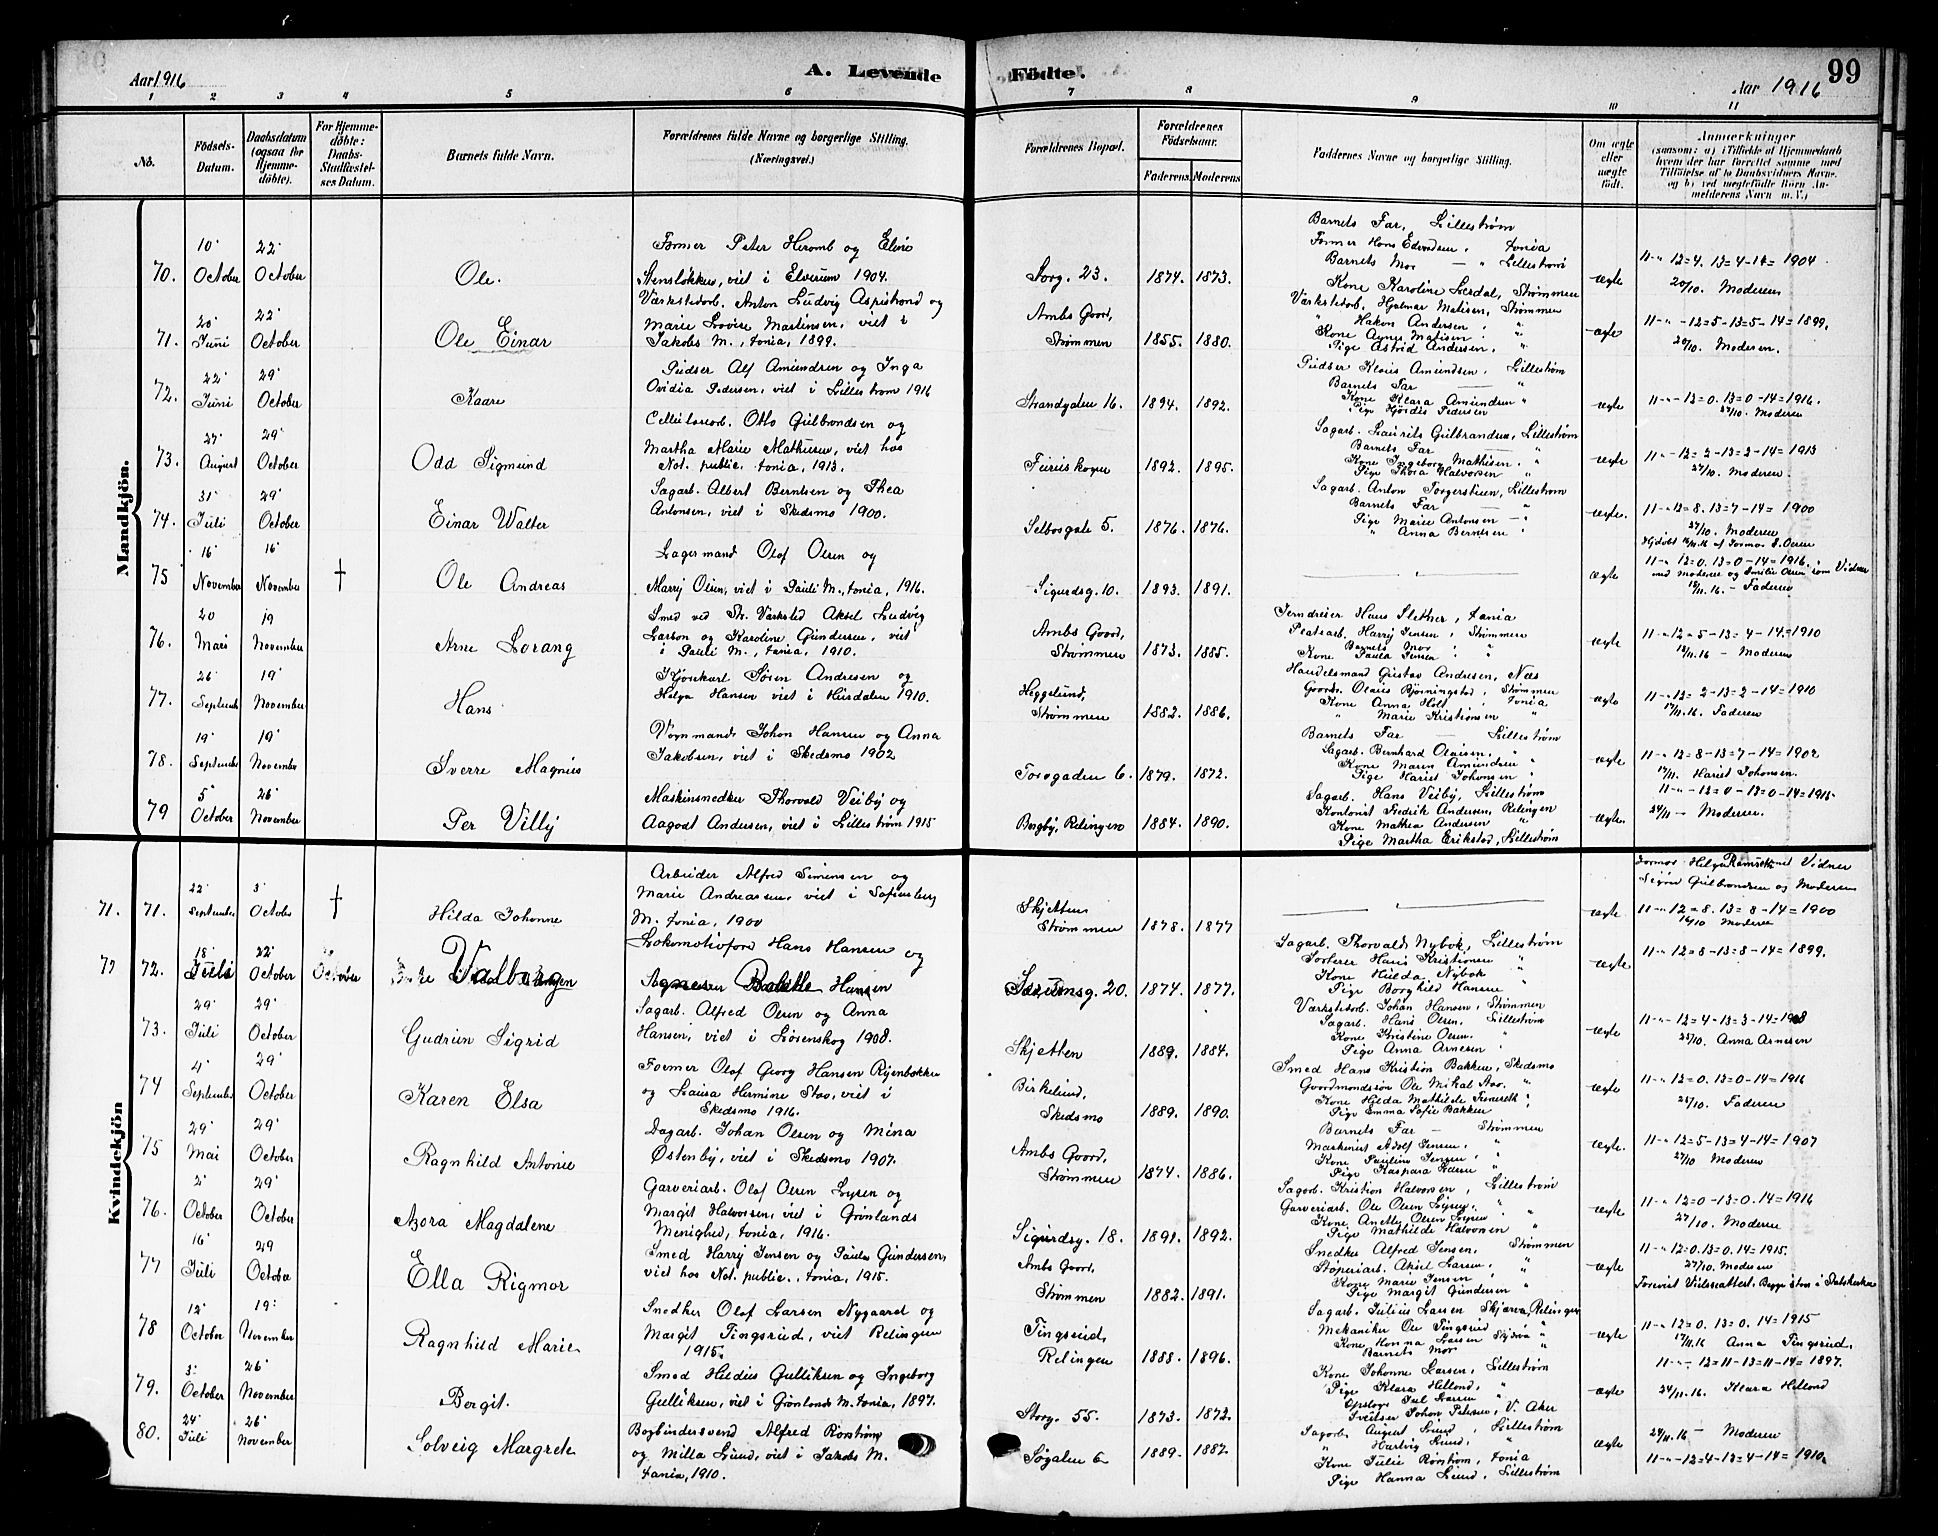 Aar 1916
A. Levende
Fødte.
Aar 1916
99
1 2 3 4 5 6 7 8 9 10 11
No.
Fødsels-
Datum.
Daabsdatum
(ogsaa for
Hjemme-
døbte).
For Hjemme-
døbte:
Daabs-
Stadfæstel-
ses Datum.
Barnets fulde Navn.
Forældrenes fulde Navne og borgerlige Stilling.
(Næringsvei.)
Forældrenes Bopæl.
Forældrenes
Fødselsaar.
Faderens. Moderens
Faddernes Navne og borgerlige Stilling.
Om ægte
eller
uægte
født.
Anmærkninger
(saasom: a) i Tilfælde af Hjemmedaab
hvem der har forrettet samme med
Tilføielse af to Daabsvidners Navne.
og b) ved uægtefødte Børn An-
melderens Navn m. V.)
Mandkjön.
70.
10' October
22' October
Ole.
Former Peter Heromb og Eline
Stensløkken, viet i Elverum 1904.
Storg. 23.
1874. 1873.
Barnets Far, Lillestrøm
Former Hans Edvardsen, tonia
Barnets Mor — " Lillestrøm
Kone Karoline Lerdal, Strømmen
ægte
11-"- 12=4. 13=4-14= 1904
20/10. Moderen
71.
20' Juni
22' October
Ole Einar
Værkstedarb. Anton Ludvig Aspestrand og
Marie Lovise Martinsen, viet i
Jakobs M., tonia, 1899.
Ambs Goord,
Strømmen
1855. 1880.
Værkstedarb. Hjalmar Matisen, Strømmen
" Hakon Andersen, "
Kone Agnes Matisen, "
Pige Astrid Andersen, "
ægte
11-"- -12=5-13=5-14=1899.
20/10. Moderen.
72.
22' Juni
29' October
Kaare
Pudser Alf Amundsen og Inga
Ovidia Pedersen, viet i Lillestrøm 1916
Strandgaten 16.
1894. 1892.
Pudser Klaus Amundsen, Lillestrøm
Barnets Far — "
Kone Klara Amundsen "
Pige Hjørdis Pedersen
ægte
11-"-12=0. 13=0-14=1916.
27/10. Moderen
73.
27' August
29' October
Odd Sigmund
Cellulosearb. Otto Gulbrandsen og
Martha Marie Mathisen, viet hos
Not. public. tonia, 1913.
1892. 1895.
Sagarb. Laurits Gulbrandsen, Lillestrøm
Barnets Far — "
Kone Ingeborg Mathisen, "
Pige Thora Halvorsen "
ægte
11-"-12=2-13=2-14=1913
27/10. Moderen.
74.
31' Juli
29' October
Einar Walter
Sagarb. Albert Berntsen og Thea
Antonsen, viet i Skedsmo 1900.
Selbosgate 5.
1876. 1876.
Sagarb. Anton Torgerstuen, Lillestrøm
Barnets Far — "
Pige Marie Antonsen — "
" Anna Berntsen "
ægte.
11-"-13=8. 13=7-14=1900
27/10. Moderen
75
16' November
16' November
†
Ole Andreas
Lagermand Olaf Olsen og
Marry Olsen, viet i Pauli M., tonia, 1916.
Sigurdsg. 10.
1893. 1891.
ægte
11-"-12=0. 13=0-14=1916.
med Moderen og Emilie Olsen som Vidner
18/11.16. - Faderen
76.
20 Mars
19 November
Arne Lorang
Smed ved Th. Værksted Aksel Ludvig
Larson og Karoline Gundersen, viet
i Pauli M., tonia, 1910.
Ambs Goord,
Strømmen
1873. 1885.
Jerndreier Hans Sletner, tonia
Pladsarb. Harry Jensen, Strømmen
Barnets Mor "
Kone Paula Jensen "
ægte
11-"-12=5-13=4-14=1910
18/11.16 - Moderen
77.
26' September
19' November
Hans
Kjørekarl Søren Andresen og
Helga Hansen viet i Hurdalen 1910.
Heggelund,
Strømmen
1882. 1886.
Handelsmand Gustav Andresen, Næs
Goordb. Olaus Bjørningstad, Strømmen
Kone Anna Holt, tonia
" Marie Kristiansen "
ægte
11-"-12=2-13=2-14=1910
17/11.16. Faderen
78.
19' September
19' November
Sverre Magnus
Vognmand Johan Hansen og Anna
Jakobsen, viet i Skedsmo 1902
Torvgaden 6.
1879. 1872.
Barnets Far — Lillestrøm
Sagarb. Bernhard Olaisen, "
Kone Maren Amundsen "
Pige Hariet Johansen "
ægte
11-"-12=8-13=7-14=1902
17/11. Hariet Johansen.
79
5' October
26' November
Per Villy
Maskinsnedker Thorvald Veiby og
Aagodt Andersen, viet i Lillestrøm 1915
Borgby, Relingen
1884. 1890.
Sagarb. Hans Veiby, Lillestrøm
Kontorist Fredrik Andersen, Relingen
Kone Mathea Andersen "
Pige Martha Erikstad, Lillestrøm
ægte.
11-"-12=0-13=0-14=1915
24/11 - Moderen.
Kvindekjön
71. 71.
22' September
3' October
†
Hilda Johanne
Arbeider Alfred Simensen og
Marie Andreassen, viet i Sofienberg
M. tonia, 1900
Skjetten
Strømmen
1878. 1877
ægte
Sigurd Gulbrandsen og Moderen
11-"-12=8. 13=8-14=1900
16/10 Moderen
72.
18' Juli
22' October
October
Valborg
Lokomotivford Hans Hansen og
Agnes Bolette Hansen
Særumsg. 20.
1874. 1877.
Sagarb. Thorvald Nybok, Lillestrøm
Sorterer Hans Kristiansen "
Kone Hulda Nybok "
Pige Borghild Hansen "
ægte
11-"-12=8-13=8-14=1899.
73.
29' Juli
29' October
Gudrun Sigrid
Sagarb. Alfred Olsen og Anna
Hansen, viet i Lørenskog 1908.
Skjetten
1889. 1884.
Værkstedarb. Johan Hansen, Strømmen
Sagarb. Hans Olsen, Lillestrøm
Kone Kristine Olsen "
Pige Anna Arnesen "
ægte
11-"-12=4-13=3-14=1908
28/10. Anna Arnesen
74
4' September
29' October
Karen Elsa
Former Olaf Georg Hansen Ryenbakken
og Laura Hermine Stav, viet i
Skedsmo 1916.
Birkelund,
Skedsmo
1889. 1890.
Smed Hans Kristian Bakken, Skedsmo
Goordmandssøn Ole Mikal Aas, "
Kone Hilda Mathilde "
Pige Emma Sofie Bakken "
ægte
11-"-12=0. 13=0-14=1916
28/10. Faderen
75
29' Mai
29' October
Ragnhild Antonie
Dagarb. Johan Olsen og Mina
Østenby, viet i Skedsmo 1907.
Ambs Goord,
Strømmen
1874. 1886.
Barnets Far — Strømmen
Maskinist Adolf Jensen, "
Kone Pauline Jensen, "
Pige Kaspara Larsen "
ægte
11-"-12=5-13=4-14=1907
27/10 Moderen
76.
2' October
29' October
Azora Magdalene
Garveriarb. Olaf Olsen Lysen og
Margit Halvorsen, viet i Grønlands
Menighed, tonia, 1916.
Sigurdsg. 18.
1891. 1892.
Sagarb. Kristian Halvorsen, Lillestrøm
Garveriarb. Ole Olsen Lysen, "
Kone Anette Olsen Lysen, "
Pige Mathilde Halvorsen "
ægte
11-"-12=0-13=0. 14=1916
27/10. Moderen
77
16' Juli
29 October
Ella Rigmor
Smed Harry Jensen og Paula Gundersen,
viet hos Not. public., tonia, 1915.
Ambs Goord,
Strømmen
1882. 1891.
Snedker Alfred Jensen, Strømmen
Støperiarb. Aksel Larsen, "
Kone Marie Jensen "
Pige Margit Gundersen "
ægte
11-"-12=0. 13=0. 14=1915.
27/10. Moderen
Forevist Vielsesattest. Begge staar i Statskirken
78
12' October
19' November
Ragnhild Marie
Snedker Olaf Larsen Nygaard og
Margit Tingsrud, viet Relingen
1915.
Tingsrud,
Relingen
1888. 1896.
Sagarb. Julius Larsen Skjærva, Relingen
Mekaniker Ole Tingsrud "
Kone Hanna Larsen Skjærva "
Barnets Mor "
ægte
11-"-12=0. 13=0. 14=1915
17/11.16 Anna Tingsrud.
79.
3' October
26' November
Bergit.
Smed Hildus Gulliksen og Ingeborg
Gulliksen, viet i Grønlands M. tonia, 1897.
Storg. 55.
1873. 1872.
Kone Johanne Larsen, Lillestrøm
Pige Klara Hellond, "
Opsloge Juel Larsen "
Sveitser Johan Petersen, V. Aker
ægte
11-"- 12=11-13=11-14=1897.
24/11.16. Klara Hellond
80.
24' Juli
26' November
Solveig Margrete
Bogbindersvend Alfred Rørstrøm
og Milla Lund, viet i Jakobs M.
tonia, 1910.
Søgaten 6
1889. 1882.
Sagarb. August Lund, Lillestrøm
" Hartvig Lund, "
Kone Julie Rørstrøm, tonia
Pige Hanna Lund, Lillestrøm
ægte
24/11.16 - Moderen
11-"-12=4-13=4-14=1910.